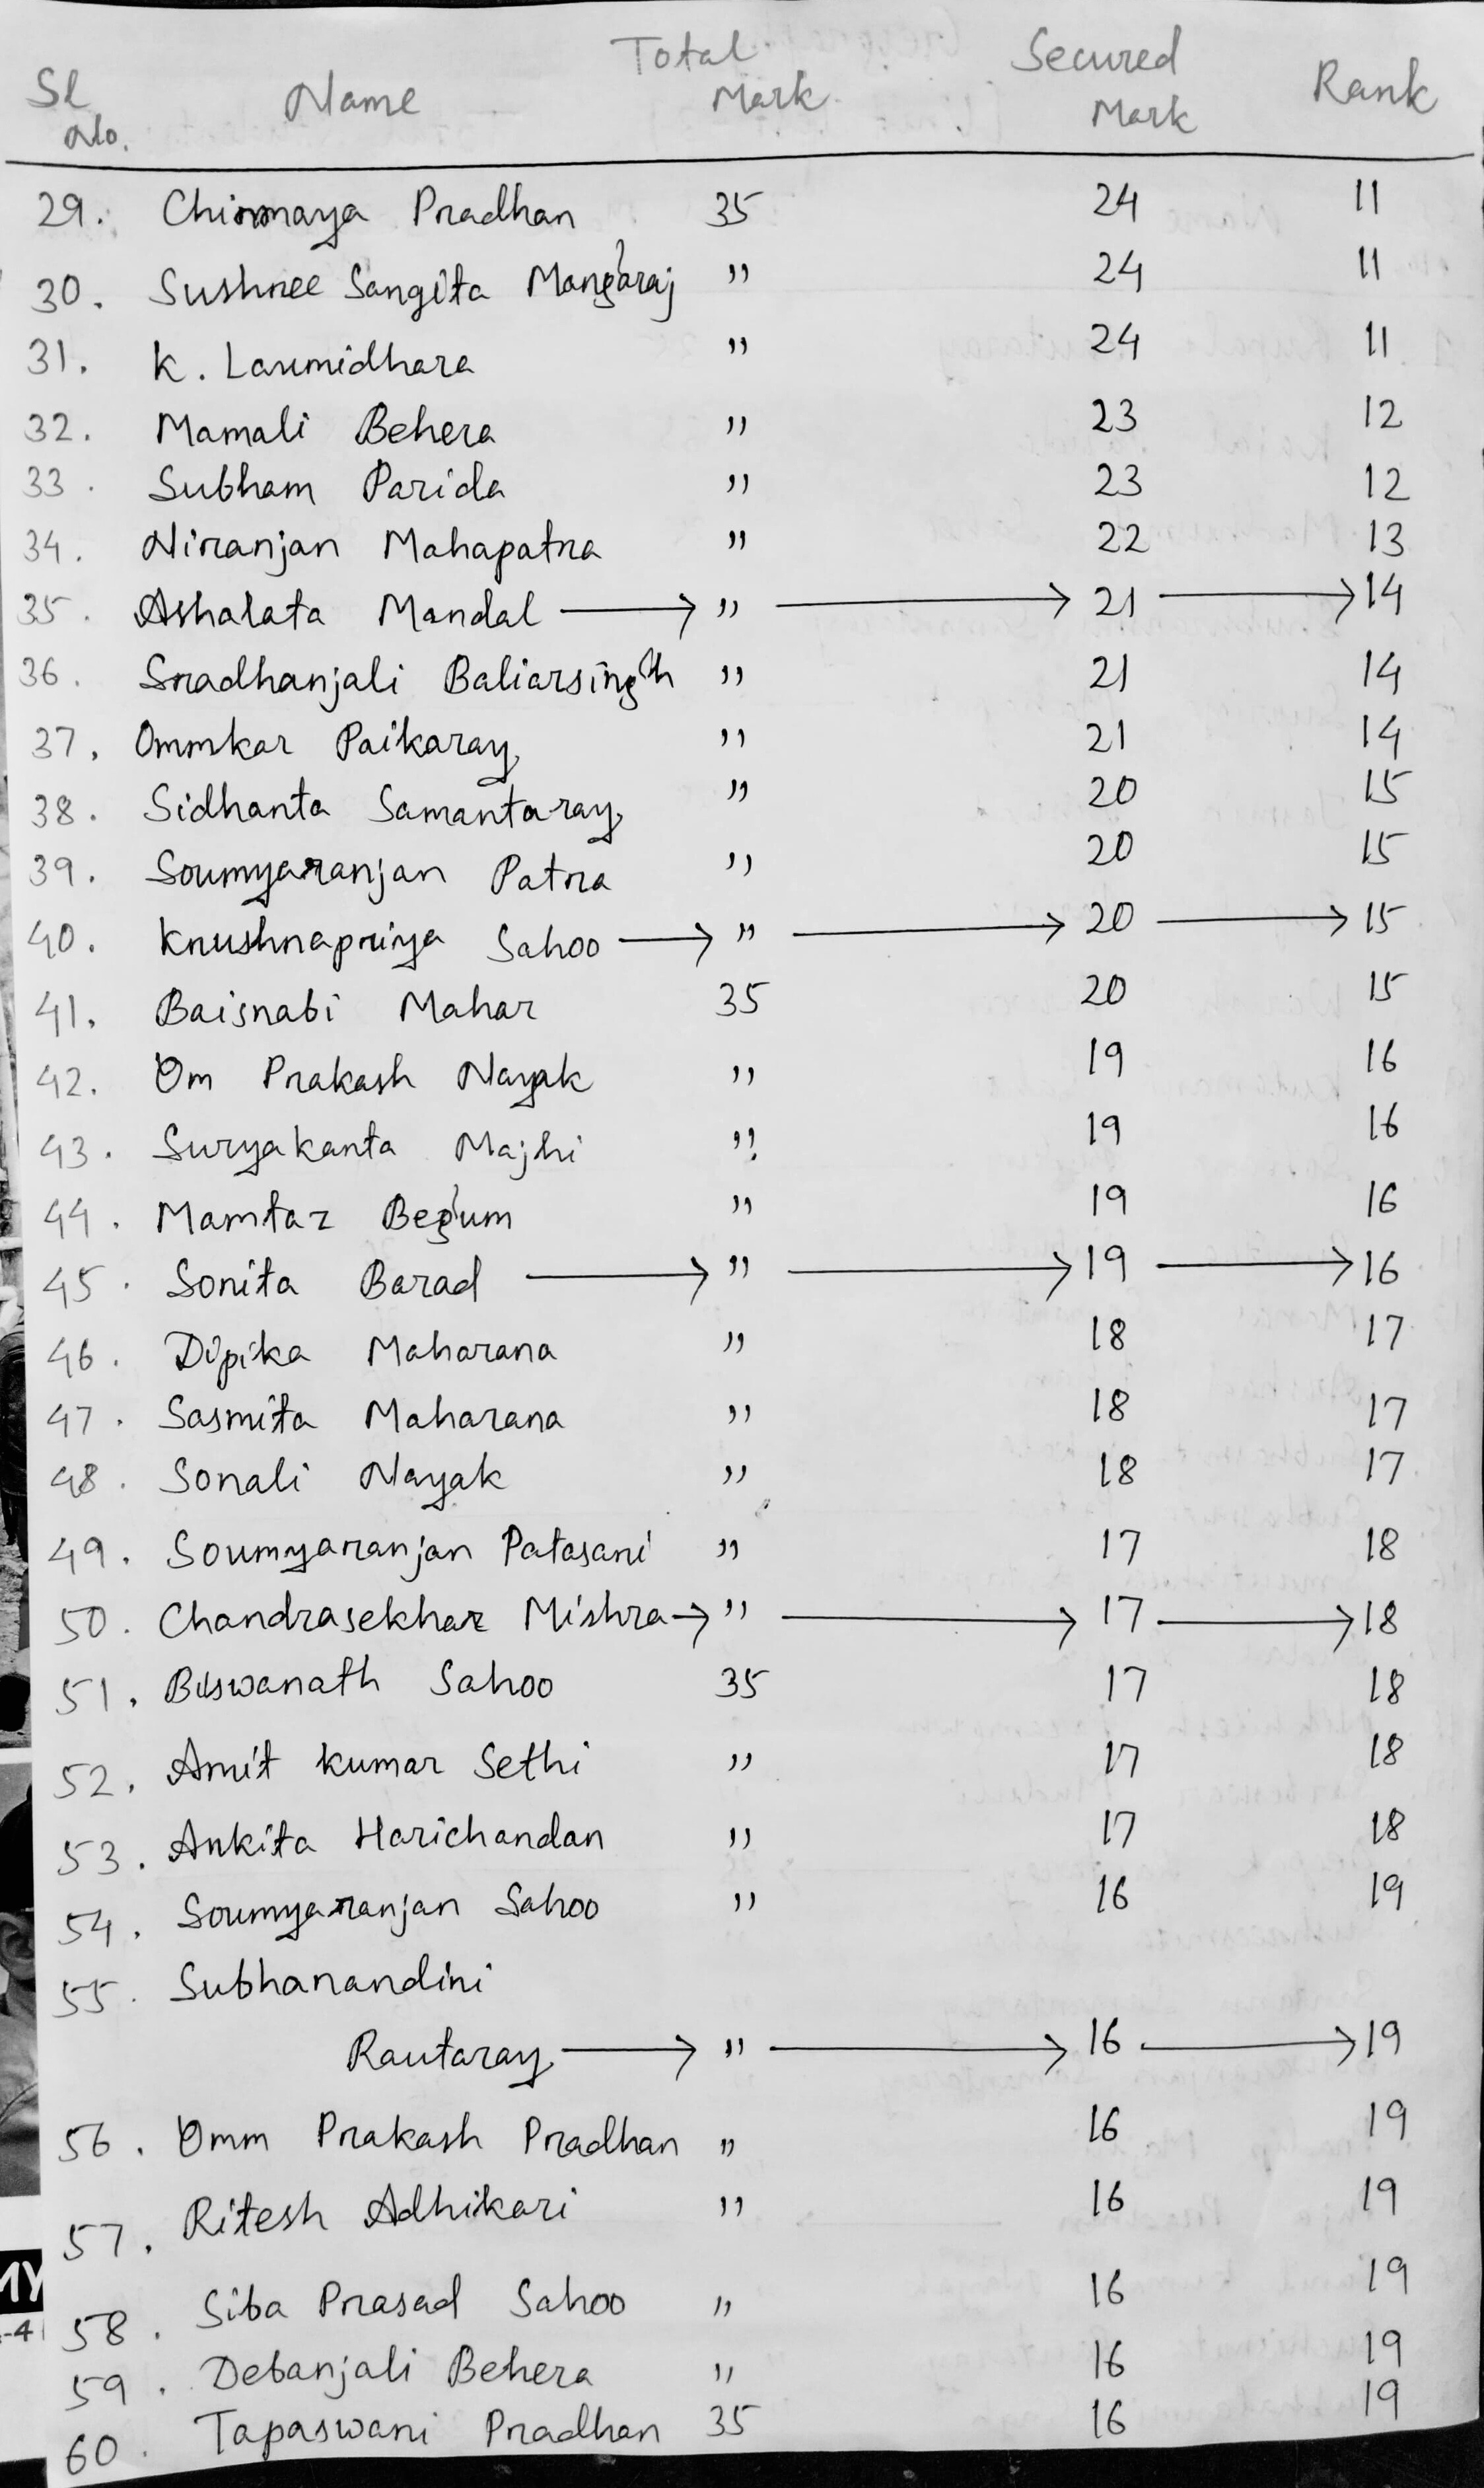 Total Secured
Sl Name Mark Mark Rank
No.
29. Chinmaya Pradhan 35 24 11
30. Sushree Sangita Mangaraj " 24 11
31. K. Laxmidhara " 24 11
32. Mamali Behera " 23 12
33. Subham Parida " 23 12
34. Niranjan Mahapatra " 22 13
35. Ashalata Mandal → " → 21 → 14
36. Sradhanjali Baliarsingh " 21 14
37. Ommkar Paikaray " 21 14
38. Sidhanta Samantaray " 20 15
39. Soumyaranjan Patra " 20 15
40. Krushnapriya Sahoo → " → 20 → 15
41. Baisnabi Mahar 35 20 15
42. Om Prakash Nayak " 19 16
43. Suryakanta Majhi " 19 16
44. Mamtaz Begum " 19 16
45. Sonita Barad → " → 19 → 16
46. Dipika Maharana " 18 17
47. Sasmita Maharana " 18 17
48. Sonali Nayak " 18 17
49. Soumyaranjan Patasani " 17 18
50. Chandrasekhar Mishra → " → 17 → 18
51. Biswanath Sahoo 35 17 18
52. Amit Kumar Sethi " 17 18
53. Ankita Harichandan " 17 18
54. Soumyaranjan Sahoo " 16 19
55. Subhanandini
Rautaray → " → 16 → 19
56. Omm Prakash Pradhan " 16 19
57. Ritesh Adhikari " 16 19
58. Siba Prasad Sahoo " 16 19
59. Debanjali Behera " 16 19
60. Tapaswani Pradhan 35 16 19